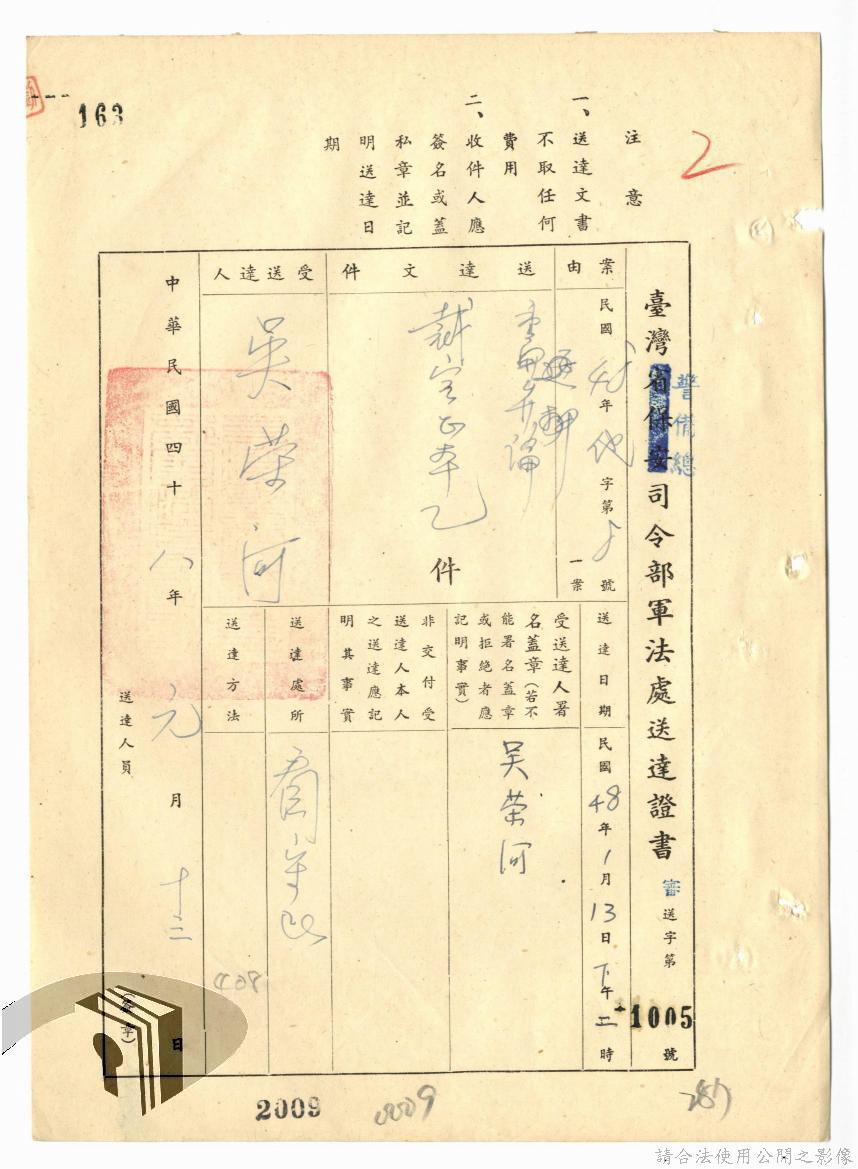 163
2
注意
一、送達文書
不取任何
費用
二、收件人應
簽名或蓋
私章並記
明送達日
期
臺灣省保安司令部軍法處送達證書
警備總
審送字第1005號
案由
民國48年
字第
號
一案
送達文件
件
受送達人
吳荣河
送達日期
民國48年1月13日下午二時
受送達人署
名蓋章(若不
能署名蓋章
或拒絕者應
記明事實)
吴荣河
非交付受
送達人本人
之送達應記
明其事實
送達處所
送達方法
408
中華民國四十八年元月十三日
送達人員
(簽章)
2009
請合法使用公開之影像